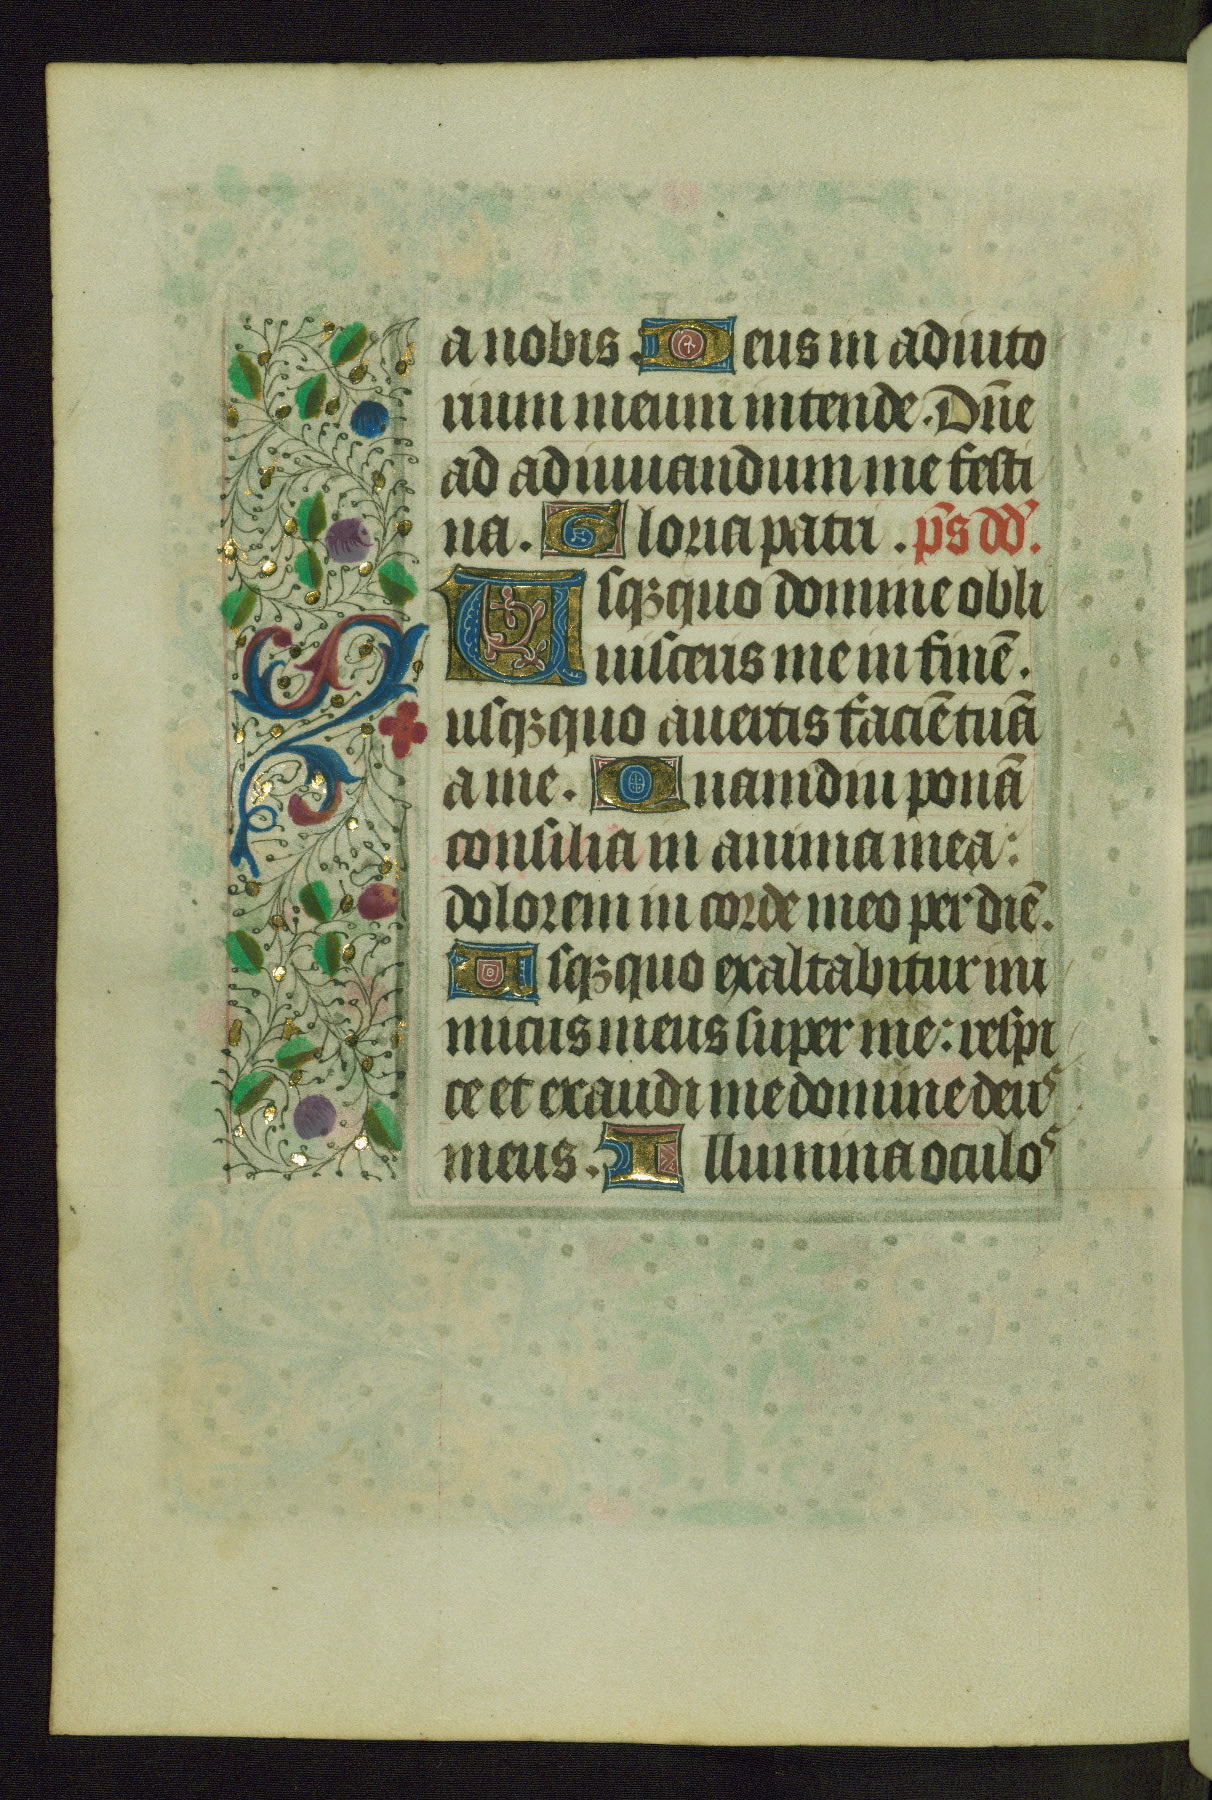 a nobis. Deus in adiuto
rium meum intende. Dn̄e
ad adiuuandum me festi
na. Gloria patri. p̄s dd̄.
Usqꝫquo domine obli
uisceris me in finē.
usqꝫquo auertis faciē tuā
a me. Quamdiu ponā
consilia in anima mea:
dolorem in corde meo per diē.
Usqꝫquo exaltabitur ini
micus meus super me: respi
ce et exaudi me domine deus
meus. Illumina oculos